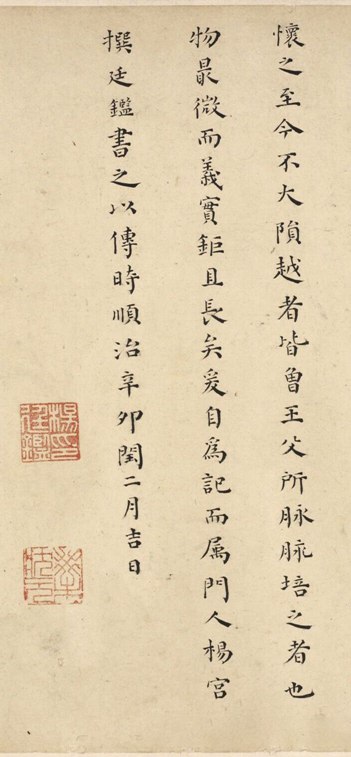 懷之至今不大隕越者皆曾王父所脉脉培之者也
物最微而義實鉅且長矣爰自為記而属門人楊宮
撰廷鑑書之以傳時順治辛卯閏二月吉日
楊印廷鑑